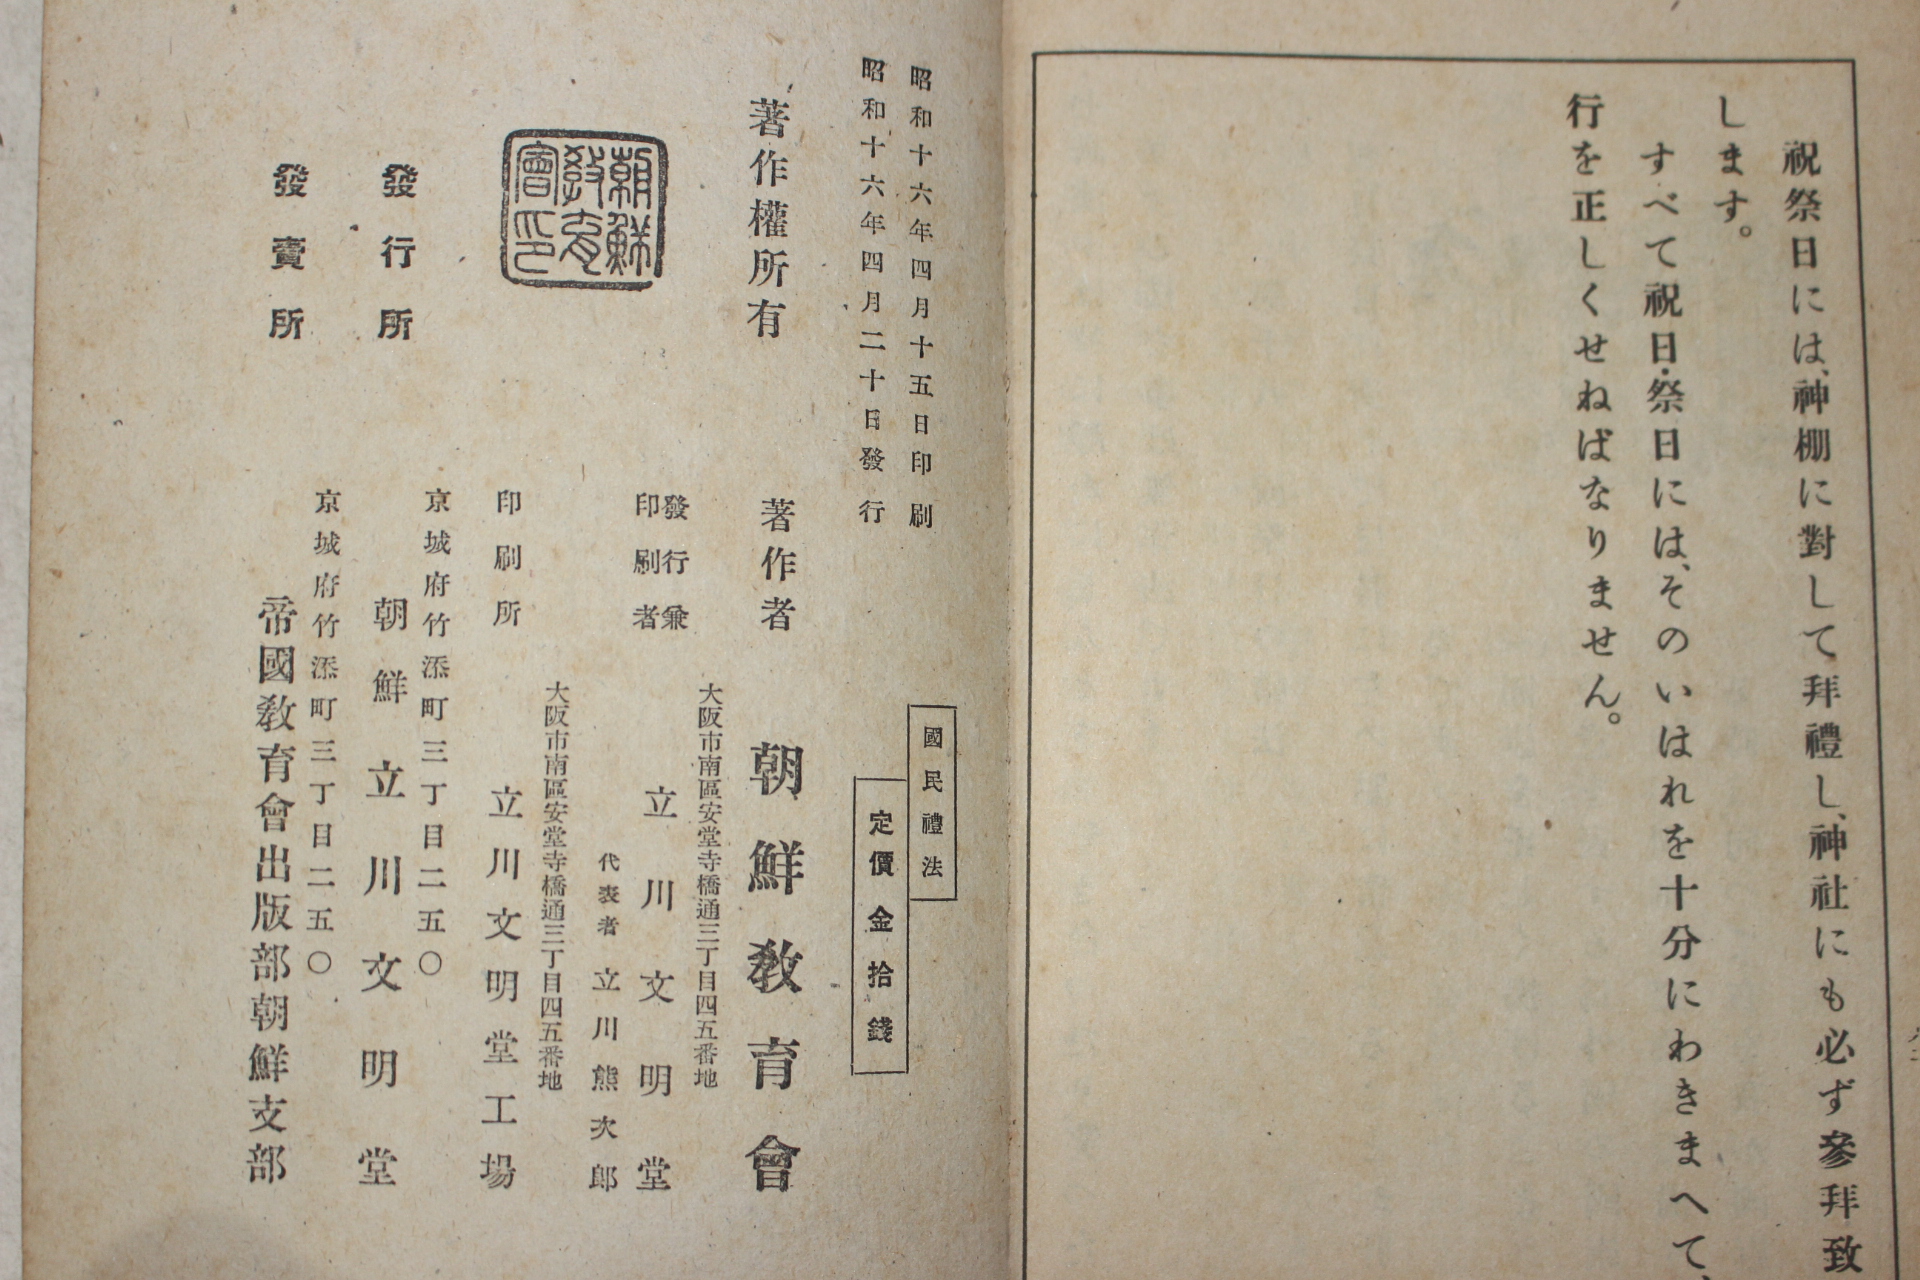 祝祭日には、神棚に對して拜禮し、神社にも必ず參拜致
します。
すべて祝日・祭日には、そのいはれを十分にわきまへて、
行を正しくせねばなりません。
昭和十六年四月十五日印刷
昭和十六年四月二十日發行
國民禮法
定價金拾錢
著作權所有
著作者 朝鮮敎育會
大阪市南區安堂寺橋通三丁目四五番地
發行兼
印刷者 立川文明堂
代表者 立川熊次郎
大阪市南區安堂寺橋通三丁目四五番地
印刷所 立川文明堂工場
朝鮮
敎育
會印
京城府竹添町三丁目二五〇
發行所 朝鮮立川文明堂
京城府竹添町三丁目二五〇
發賣所 帝國敎育會出版部朝鮮支部